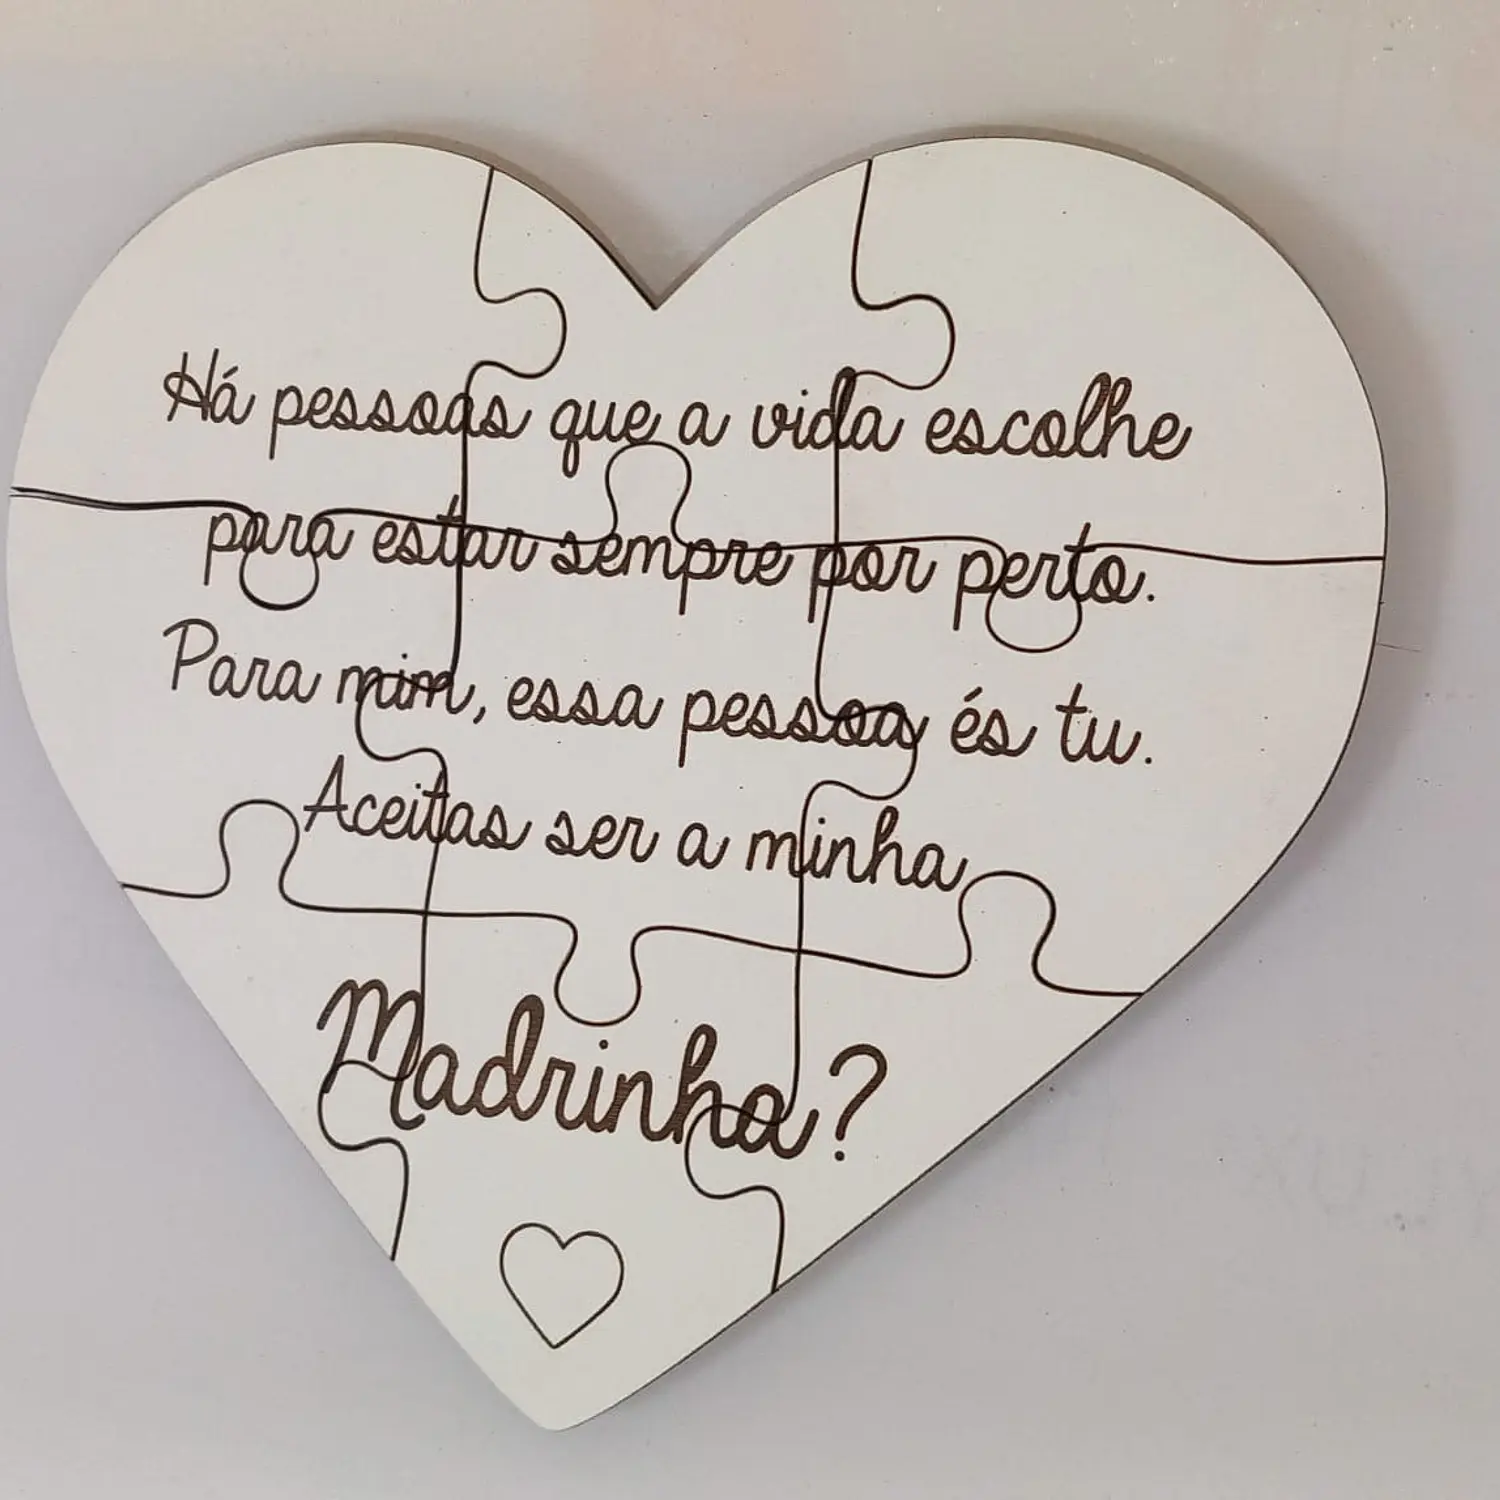 Há pessoas que a vida escolhe
para estar sempre por perto.
Para mim, essa pessoa és tu.
Aceitas ser a minha
Madrinha?